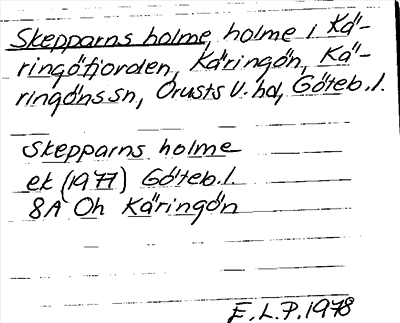 Skepparns holme, holme i Kä-
ringöfjorden, Käringön, Kä-
ringöns sn, Orusts V. hd, Göteb. l.
Skepparns holme
ek (1977) Göteb. l.
8A Oh Käringön
E. L. P. 1978